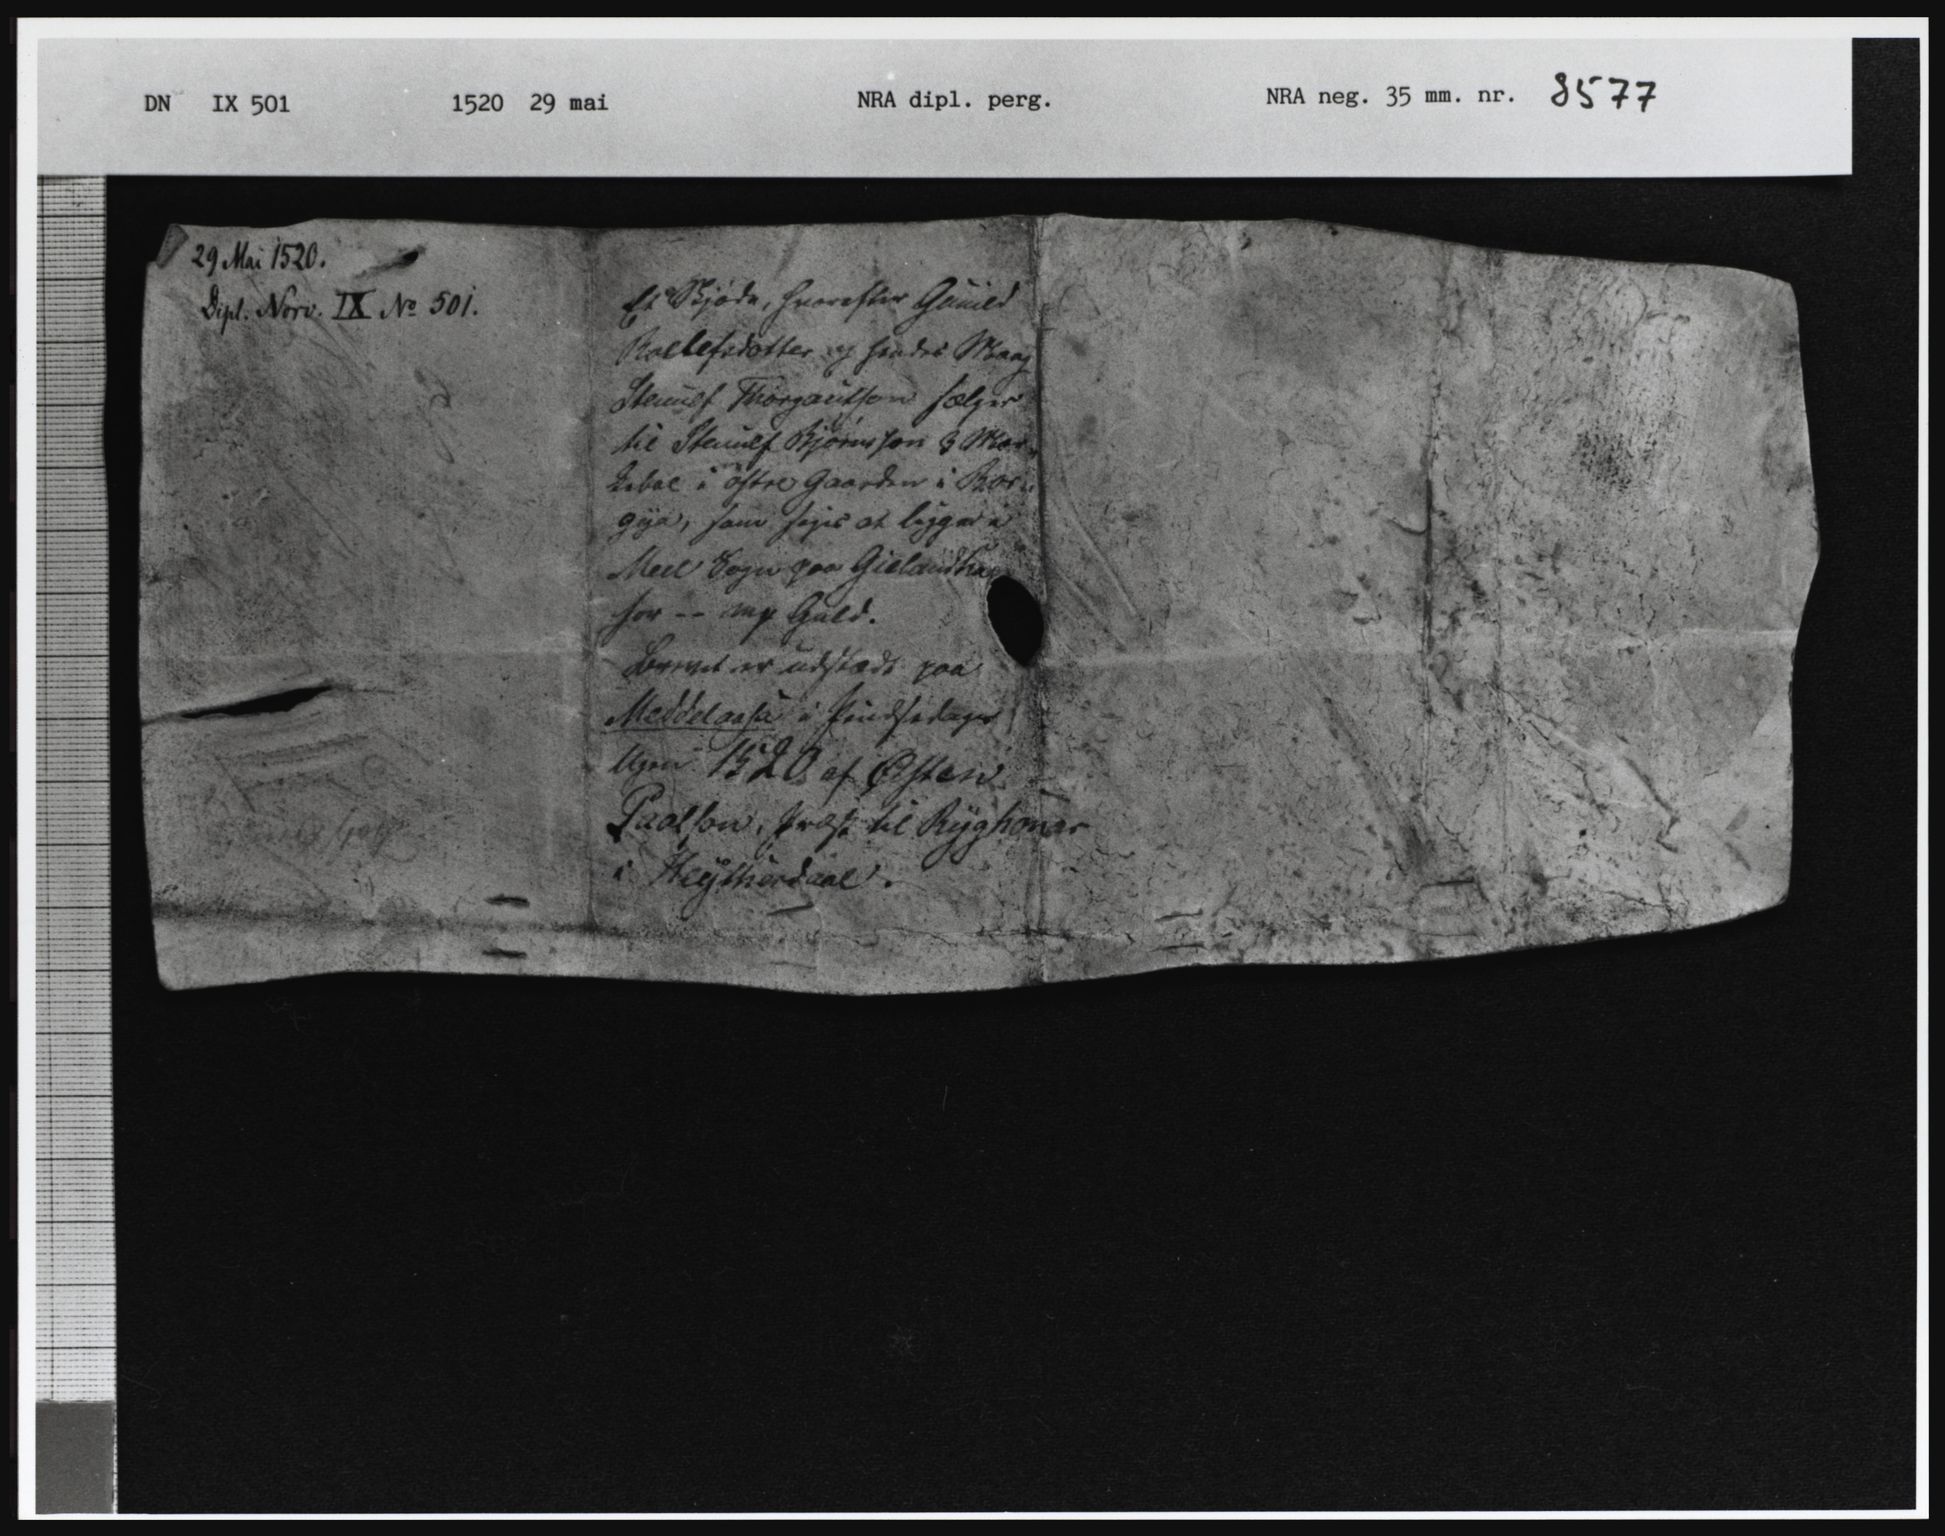 DN IX 501 1520 29 mai NRA dipl. perg. NRA neg. 35 mm. nr. 8577
29 Mai 1520.
Dipl. Norv. IX No 501.
Et Skjøde, hvorefter Gunild
Roelefsdotter og hendes Maag
Stenulf Thorgautson sælger
til Stenulf Bjørnsson 3 Mar
kebol i østre Gaarden i Bor
gija, som siges at ligge i
Meel Sogn paa Gielandtha
for -- mp Guld.
Brevet er udstædt paa
Meddelaasa i Pindsedags
Ugen 1520 af Østen
Paalson, Præst til Ryghonar
i Heytherdaal.